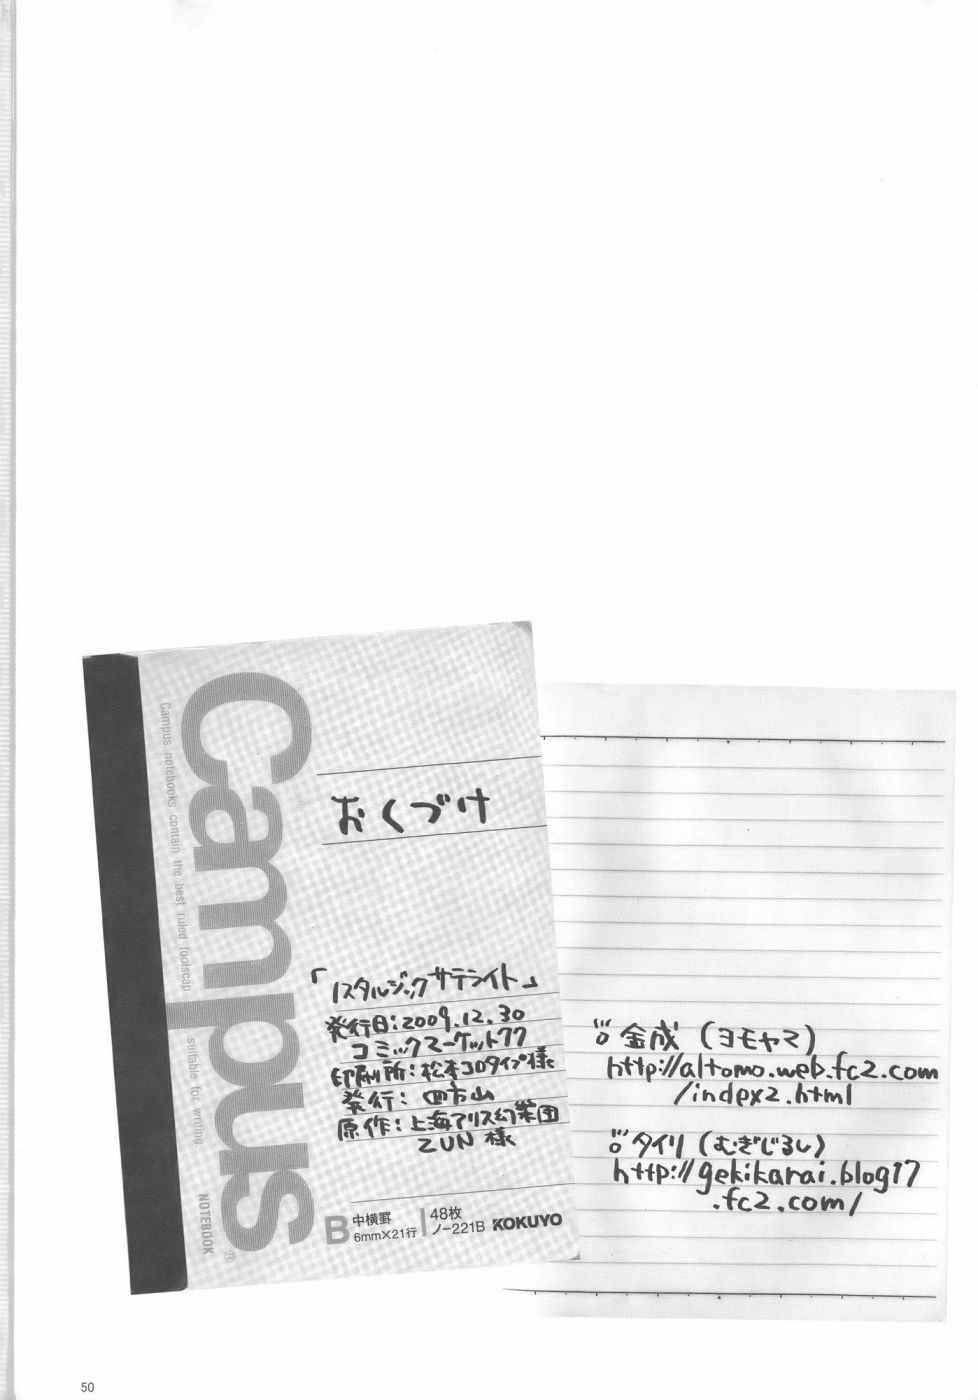 Campus
Campus notebooks contain the best ruled foolscap
suitable for writing
NOTEBOOK
おくづけ
「ノスタルジックサテライト」
発行日:2009.12.30
コミックマーケット77
印刷所:松本コロタイプ様
発行:四方山
原作:上海アリス幻樂団
ZUN様
B 中横罫
6mm×21行
48枚
ノ-221B
KOKUYO
金成(ヨモヤマ)
http://altomo.web.fc2.com
/index2.html
タイリ(むぎじるし)
http://gekikarai.blog17
.fc2.com/
50